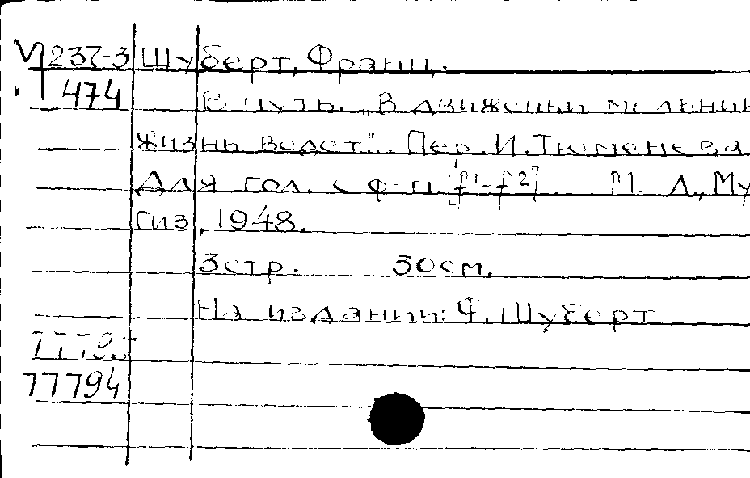 V 237-3 Шуберт, Франц.
474 В путь. "В движеньи мельник
жизнь ведет". Пер. И. Тюменева
Для гол. с ф-п. [f¹-f²]. М. Л., Му
гиз, 1948.
3 стр. 30 см.
На издании: Ф. Шуберт
77794